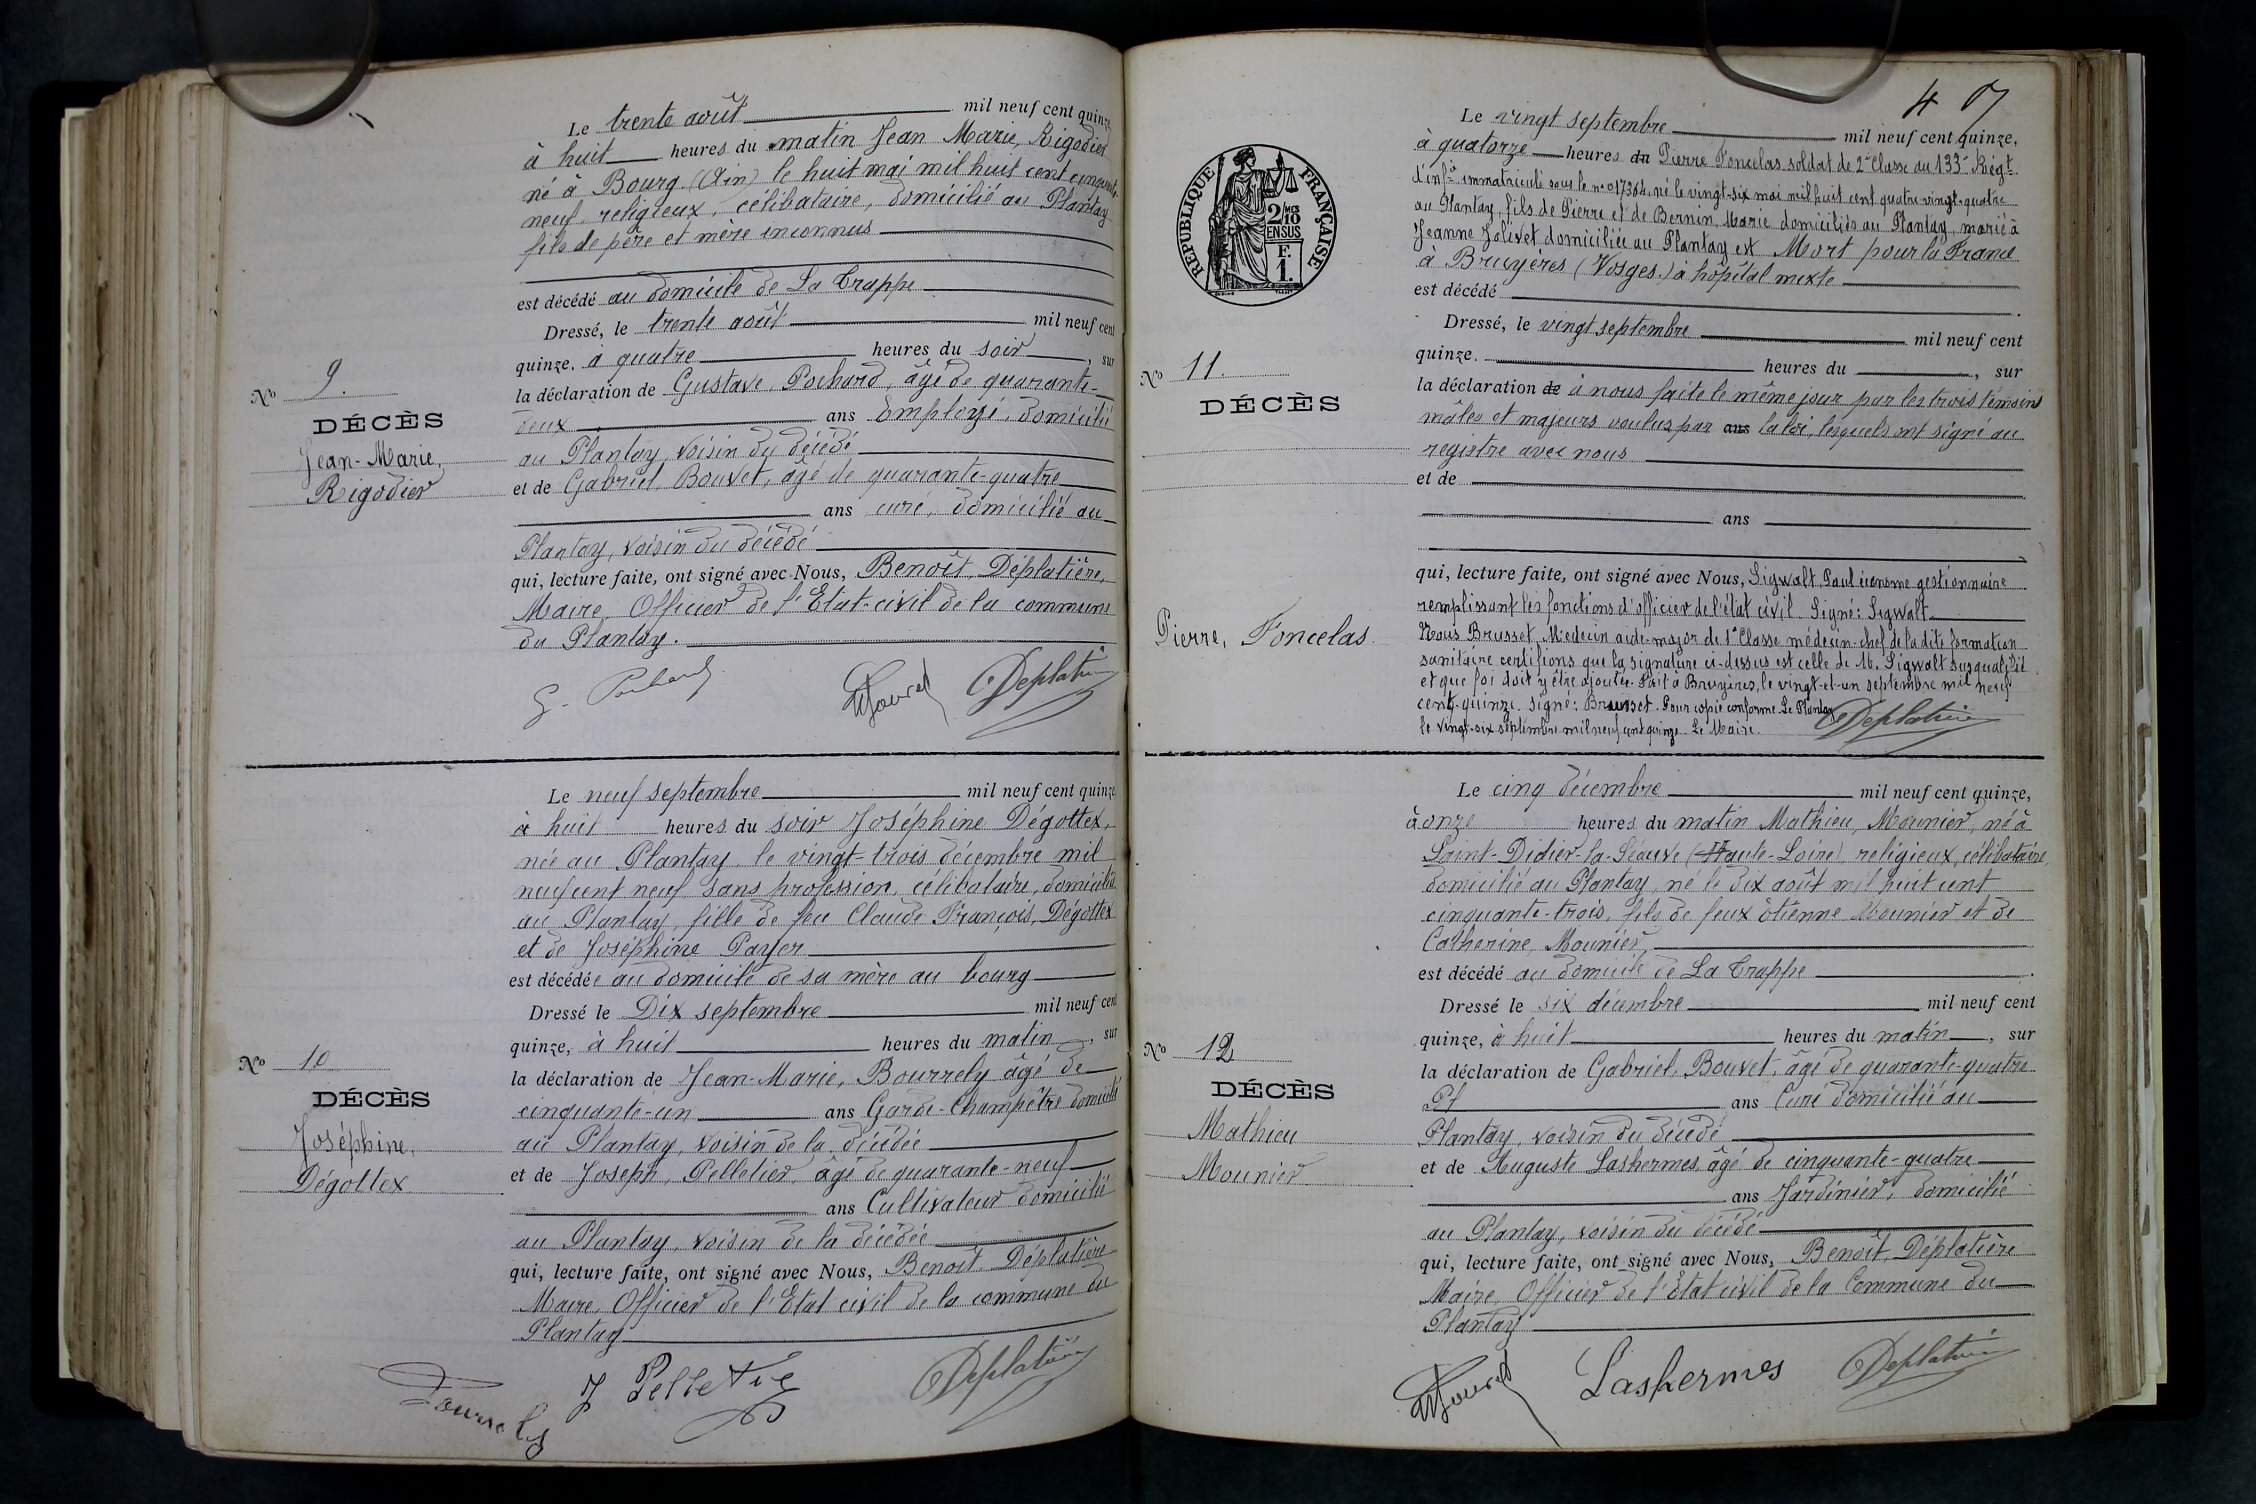 Le trente août mil neuf cent quinze,
à huit heures du matin Jean Marie, Rigodier
né à Bourg (Ain) le huit mai mil huit cent cinquante-
neuf, religieux, célibataire, domicilié au Plantay
fils de père et mère inconnus
est décédé au domicile de La Trappe
Dressé, le trente août mil neuf cent
quinze, à quatre heures du soir, sur
la déclaration de Gustave, Pochard, âgé de quarante-
deux ans Employé, domicilié
au Plantay, voisin du décédé
et de Gabriel, Bouvet, âgé de quarante-quatre
ans curé, domicilié au
Plantay, voisin du décédé
qui, lecture faite, ont signé avec Nous, Benoît, Déplatière,
Maire, Officier de l'Etat-civil de la commune
du Plantay.
No 9.
DÉCÈS
Jean-Marie,
Rigodier
Le neuf septembre mil neuf cent quinze
à huit heures du soir Joséphine Dégottex,
née au Plantay, le vingt-trois décembre mil
neuf cent neuf sans profession, célibataire, domiciliée
au Plantay, fille de feu Claude François, Dégottex
et de Joséphine Payer
est décédée au domicile de sa mère au bourg
Dressé le Dix septembre mil neuf cent
quinze, à huit heures du matin, sur
la déclaration de Jean-Marie, Bourrely âgé de
cinquante-un ans Garde-Champêtre domicilié
au Plantay, voisin de la décédée
et de Joseph, Pelletier, âgé de quarante-neuf
ans Cultivateur domicilié
au Plantay, voisin de la décédée
qui, lecture faite, ont signé avec Nous, Benoît, Déplatière
Maire, Officier de l'Etat civil de la commune du
Plantay
No 10
DÉCÈS
Joséphine,
Dégottex
J Pelletie
Deplatière
4
RÉPUBLIQUE FRANÇAISE
2/10 MES
EN SUS
F.
1.
Le vingt septembre mil neuf cent quinze,
à quatorze heures du Pierre Foncelas soldat de 2e Classe au 133e Régt
d'infie immatriculé sous le no 017364, né le vingt-six mai mil huit cent quatre-vingt-quatre
au Plantay, fils de Pierre et de Bernin, Marie domiciliés au Plantay, marié à
Jeanne Jolivet domiciliée au Plantay est Mort pour la France
à Bruyères (Vosges) à hôpital mixte
est décédé
Dressé, le vingt septembre mil neuf cent
quinze. heures du, sur
la déclaration de à nous faite le même jour par les trois témoins
mâles et majeurs voulus par ans la loi, lesquels ont signé au
registre avec nous
et de
ans
qui, lecture faite, ont signé avec Nous, Sigwalt, Paul économe gestionnaire
remplissant les fonctions d'officier de l'état civil. Signé: Sigwalt
Nous Brusset, Médecin aide-major de 1e Classe médecin-chef de la dite formation
sanitaire certifions que la signature ci-dessus est celle de M. Sigwalt susqualifié
et que foi doit y être ajoutée. Fait à Bruyères, le vingt-et-un septembre mil neuf
cent-quinze. Signé: Brusset. Pour copie conforme. Le Plantay
le vingt-six septembre mil neuf cent quinze. Le Maire.
Deplatière
No 11.
DÉCÈS
Pierre, Foncelas.
Le cinq décembre mil neuf cent quinze,
à onze heures du matin Mathieu, Mounier, né à
Saint-Didier-la-Séauve (Haute-Loire) religieux, célibataire,
domicilié au Plantay, né le dix août mil huit cent
cinquante-trois, fils de feux étienne Mounier et de
Catherine, Mounier,
est décédé au domicile de La Trappe
Dressé le six décembre mil neuf cent
quinze, à huit heures du matin, sur
la déclaration de Gabriel, Bouvet, âgé de quarante-quatre
Pl ans Curé domicilié au
Plantay, voisin du décédé
et de Auguste Lashermes, âgé de cinquante-quatre
ans Jardinier, domicilié
au Plantay, voisin du décédé
qui, lecture faite, ont signé avec Nous, Benoît, Déplatière
Maire, Officier de l'Etat civil de la Commune du
Plantay
No 12
DÉCÈS
Mathieu
Mounier
Lashermes
Deplatière